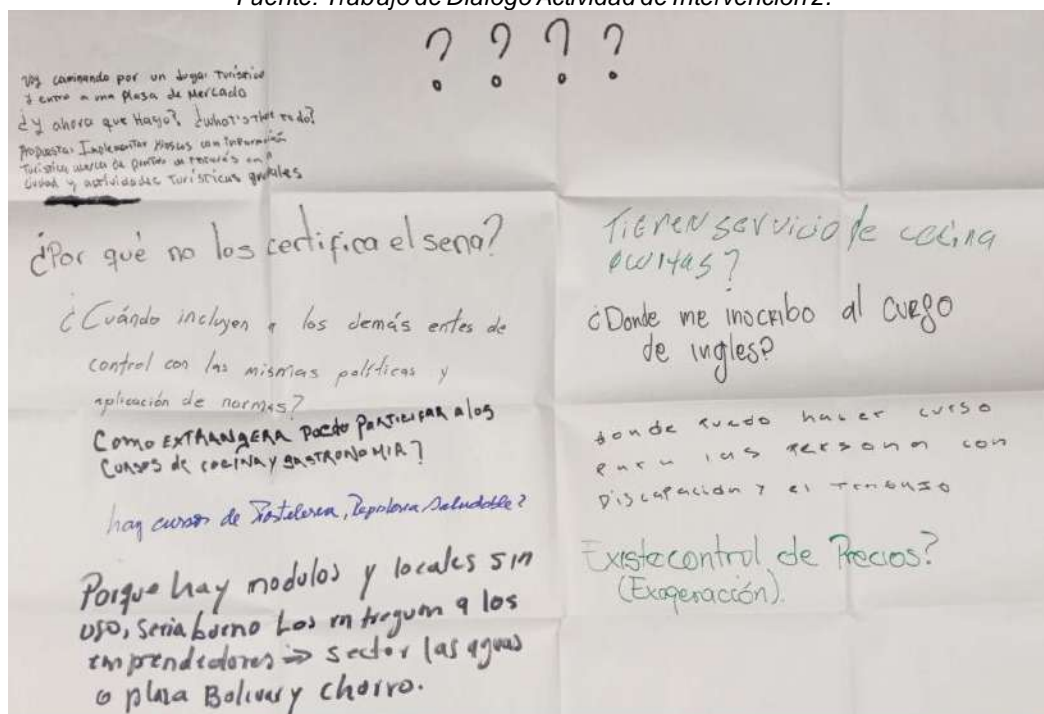 Fuente: Trabajo de Diálogo Actividad de Intervención 2.
? ? ? ?
Voy caminando por un lugar Turístico
y entro a una Plasa de Mercado
¿y ahora que Hago? ¿what's the to do?
Propuesta: Implementar Kioscos con información
Turística acerca de puntos de en
Ciudad y actividades Turísticas
¿Por qué no los certifica el sena?
¿Cuándo incluyen a los demás entes de
control con las mismas políticas y
aplicación de normas?
Como EXTRANGERA Puedo PARTICIPAR a los
CURSOS de COCINA y GASTRONOMIA?
hay cursos de Pastelerea, Reposteria Saludable?
Porque hay modulos y locales sin
uso, seria bueno Los entreguen a los
emprendedores => sector las aguas
o plaza Bolivar y chorro.
Tienen servicio de cocina
ocultas?
¿Donde me inscribo al curso
de ingles?
donde puedo hacer curso
para las persona con
Discapacidad y el
Existe control de Precios?
(Exageración).